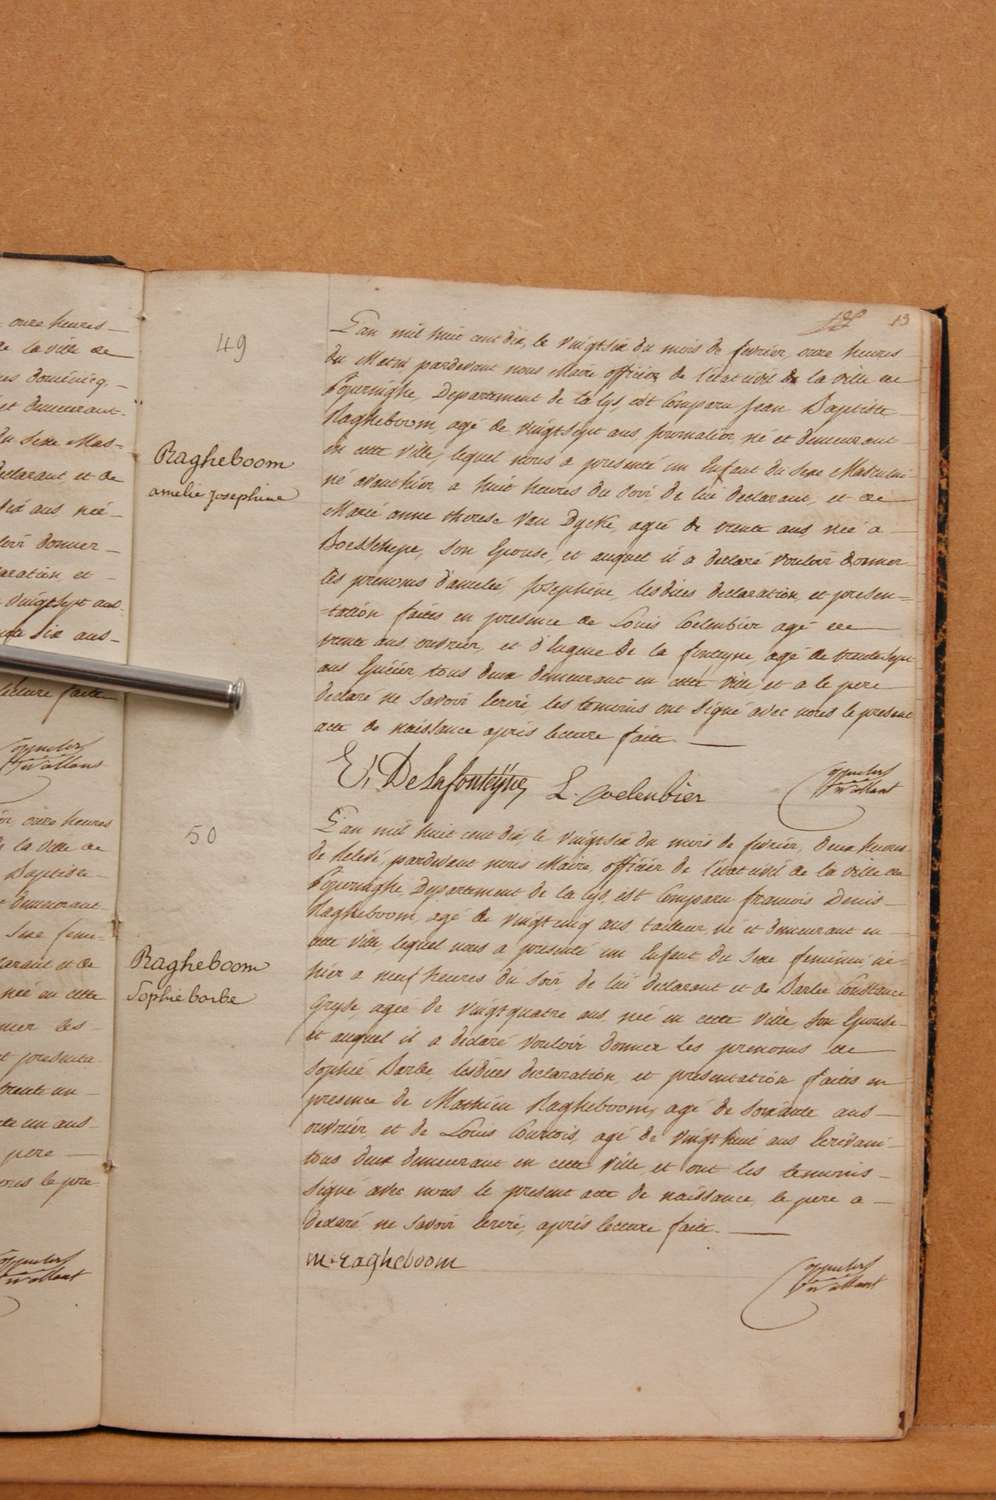 onze heures
de la ville de
demeurant
du sexe Mas-
declarant et de
dix ans née
donner
-aration, et
vingtsept ans
six ans
lecture faite
onze heures
de la ville de
Baptiste
demeurant
Sexe femi-
-clarant et de
née en cette
les
et presenta-
trente un
un ans
pere
le pre
13
49
Ragheboom
amelie josephine
L'an mil huit cent dix, le vingtsix du mois de fevrier, onze heures
du Matin pardevant nous Maire officier de l'etat civil de la ville de
Poperinghe, Departement de la Lys, est Comparu Jean Baptiste
Ragheboom, agé de vingtsept ans journalier, né et demeurant
en cette Ville, lequel nous a presenté un Enfant du Sexe Masculin
né avanthier a huit heures du Soir de lui declarant, et de
Marie anne therese Van Dycke, agée de trente ans née a
Boesschepe, Son Epouse, et auquel il a declaré vouloir donner
les prenoms d'amelié, Josephine, lesdites declaration, et presen-
-tation faites en presence de Louis Coelenbier agé de
trente ans ouvrier, et d'Eugene De la fonteyne, agé de trente Sept
ans tous deux demeurant en cette Ville et a le pere
declaré ne Savoir ecrire les temoins ont Signé avec nous le present
acte de naissance après lecture faite.
E, De Lafonteÿne L. Coelenbier
50
Ragheboom
Sophie barbe
L'an mil huit cent dix, le vingtsix du mois de fevrier, deux heures
de Relevé, pardevant nous Maire, officier de l'etat civil de la ville de
Poperinghe, Departement de la Lys, est Comparu francois Denis
Ragheboom, agé de vingt cinq ans, tailleur, né et demeurant en
cette ville, lequel nous a presenté un Enfant du Sexe feminin né
hier a neuf heures du Soir de lui declarant et de Barbe Constance
Gryse agée de vingtquatre ans née en cette Ville Son Epouse
et auquel il a declaré vouloir donner les prenoms de
Sophie Barbe lesdites declaration, et presentation faites en
presence de Mathieu Ragheboom, agé de soixante ans
ouvrier et de Louis Courtois, agé de vingt huit ans Ecrivain
tous deux demeurant en cette Ville et ont les temoins
Signé avec nous le present acte de naissance, le pere a
declaré ne Savoir ecrire, après lecture faite.
m. ragheboom